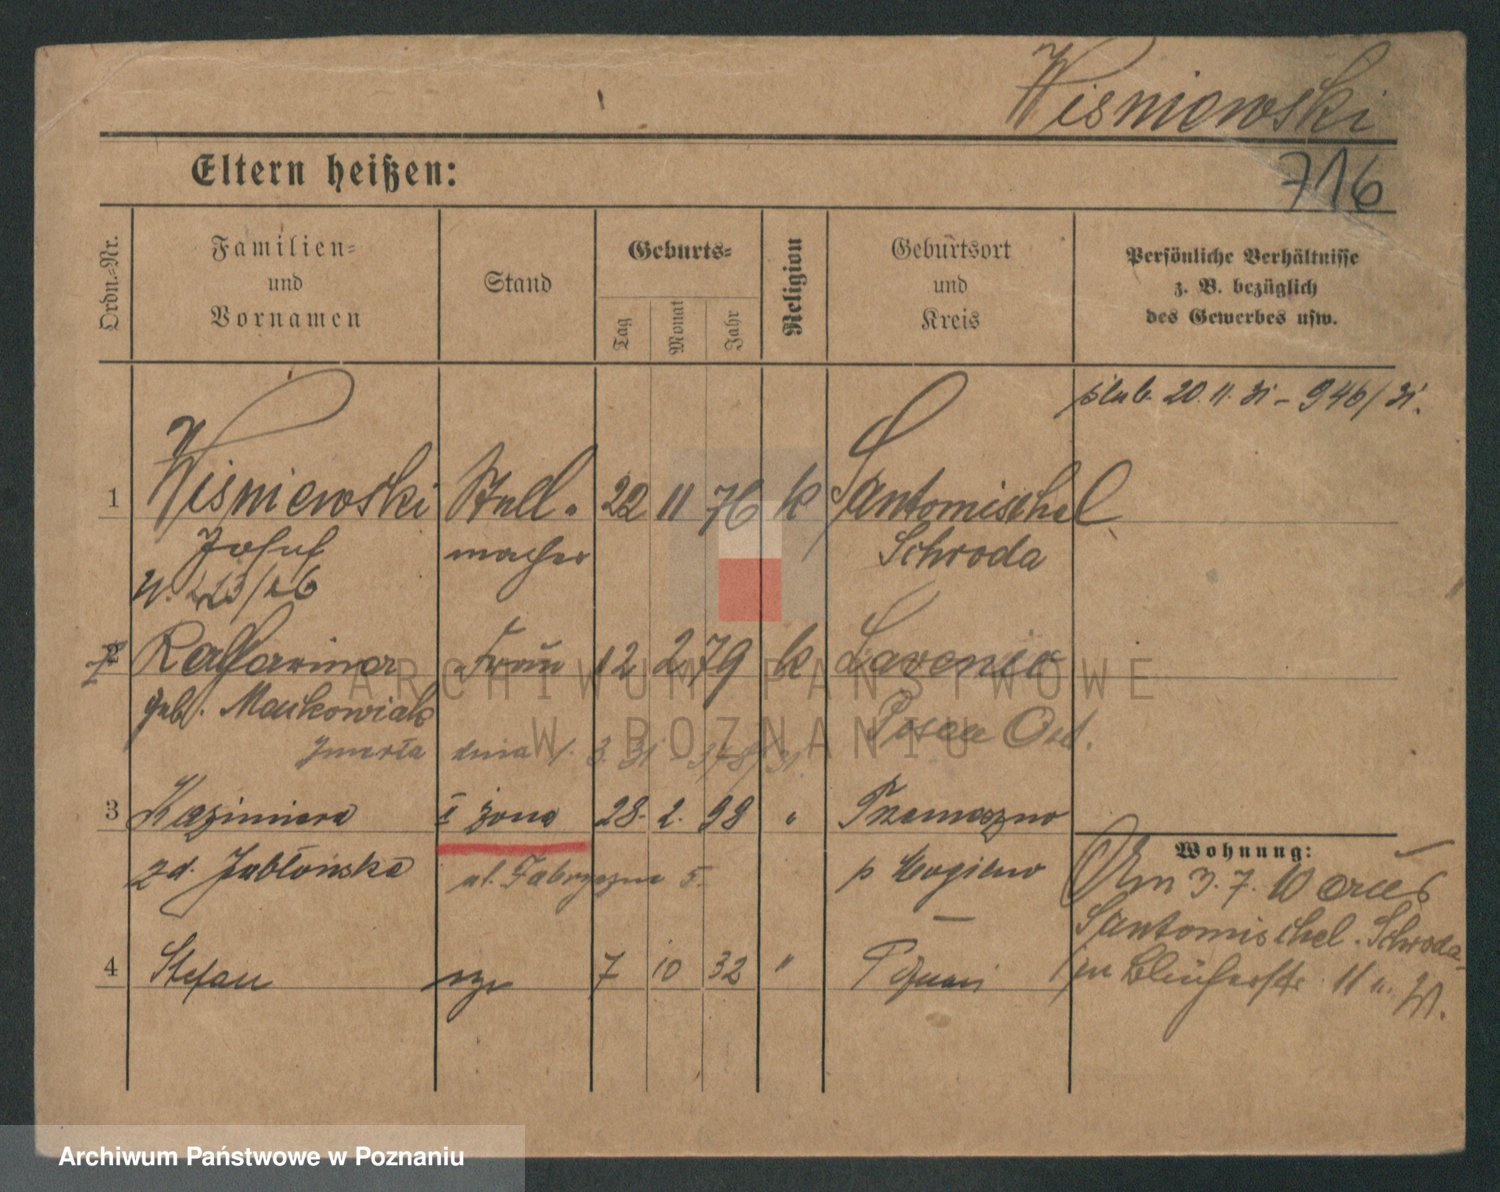 Wisniewski
Eltern heißen:
716
Ordn.=Nr.
Familien=
und
Vornamen
Stand
Geburts=
Tag
Monat
Jahr
Religion
Geburtsort
und
Kreis
Persönliche Verhältnisse
z. B. bezüglich
des Gewerbes usw.
ślub 20.11.31 - 946/31.
1 Wisniewski Stell- 22 11 76 k Santomischel
Josef macher Schroda
2 Katharina Frau 12 2 79 k
geb. Maćkowiak Posen Ost.
zmarła dnia 1. 3. 31
3 Kazimiera II żona 28. 2. 98 "
zd. Jabłońska ul. Fabryczna 5. p Mogilno
Wohnung:
Am 3.7.
Santomischel. Schroda
4 Stefan syn 7 10 32 " Poznań
11
ARCHIWUM PAŃSTWOWE
W POZNANIU
Archiwum Państwowe w Poznaniu